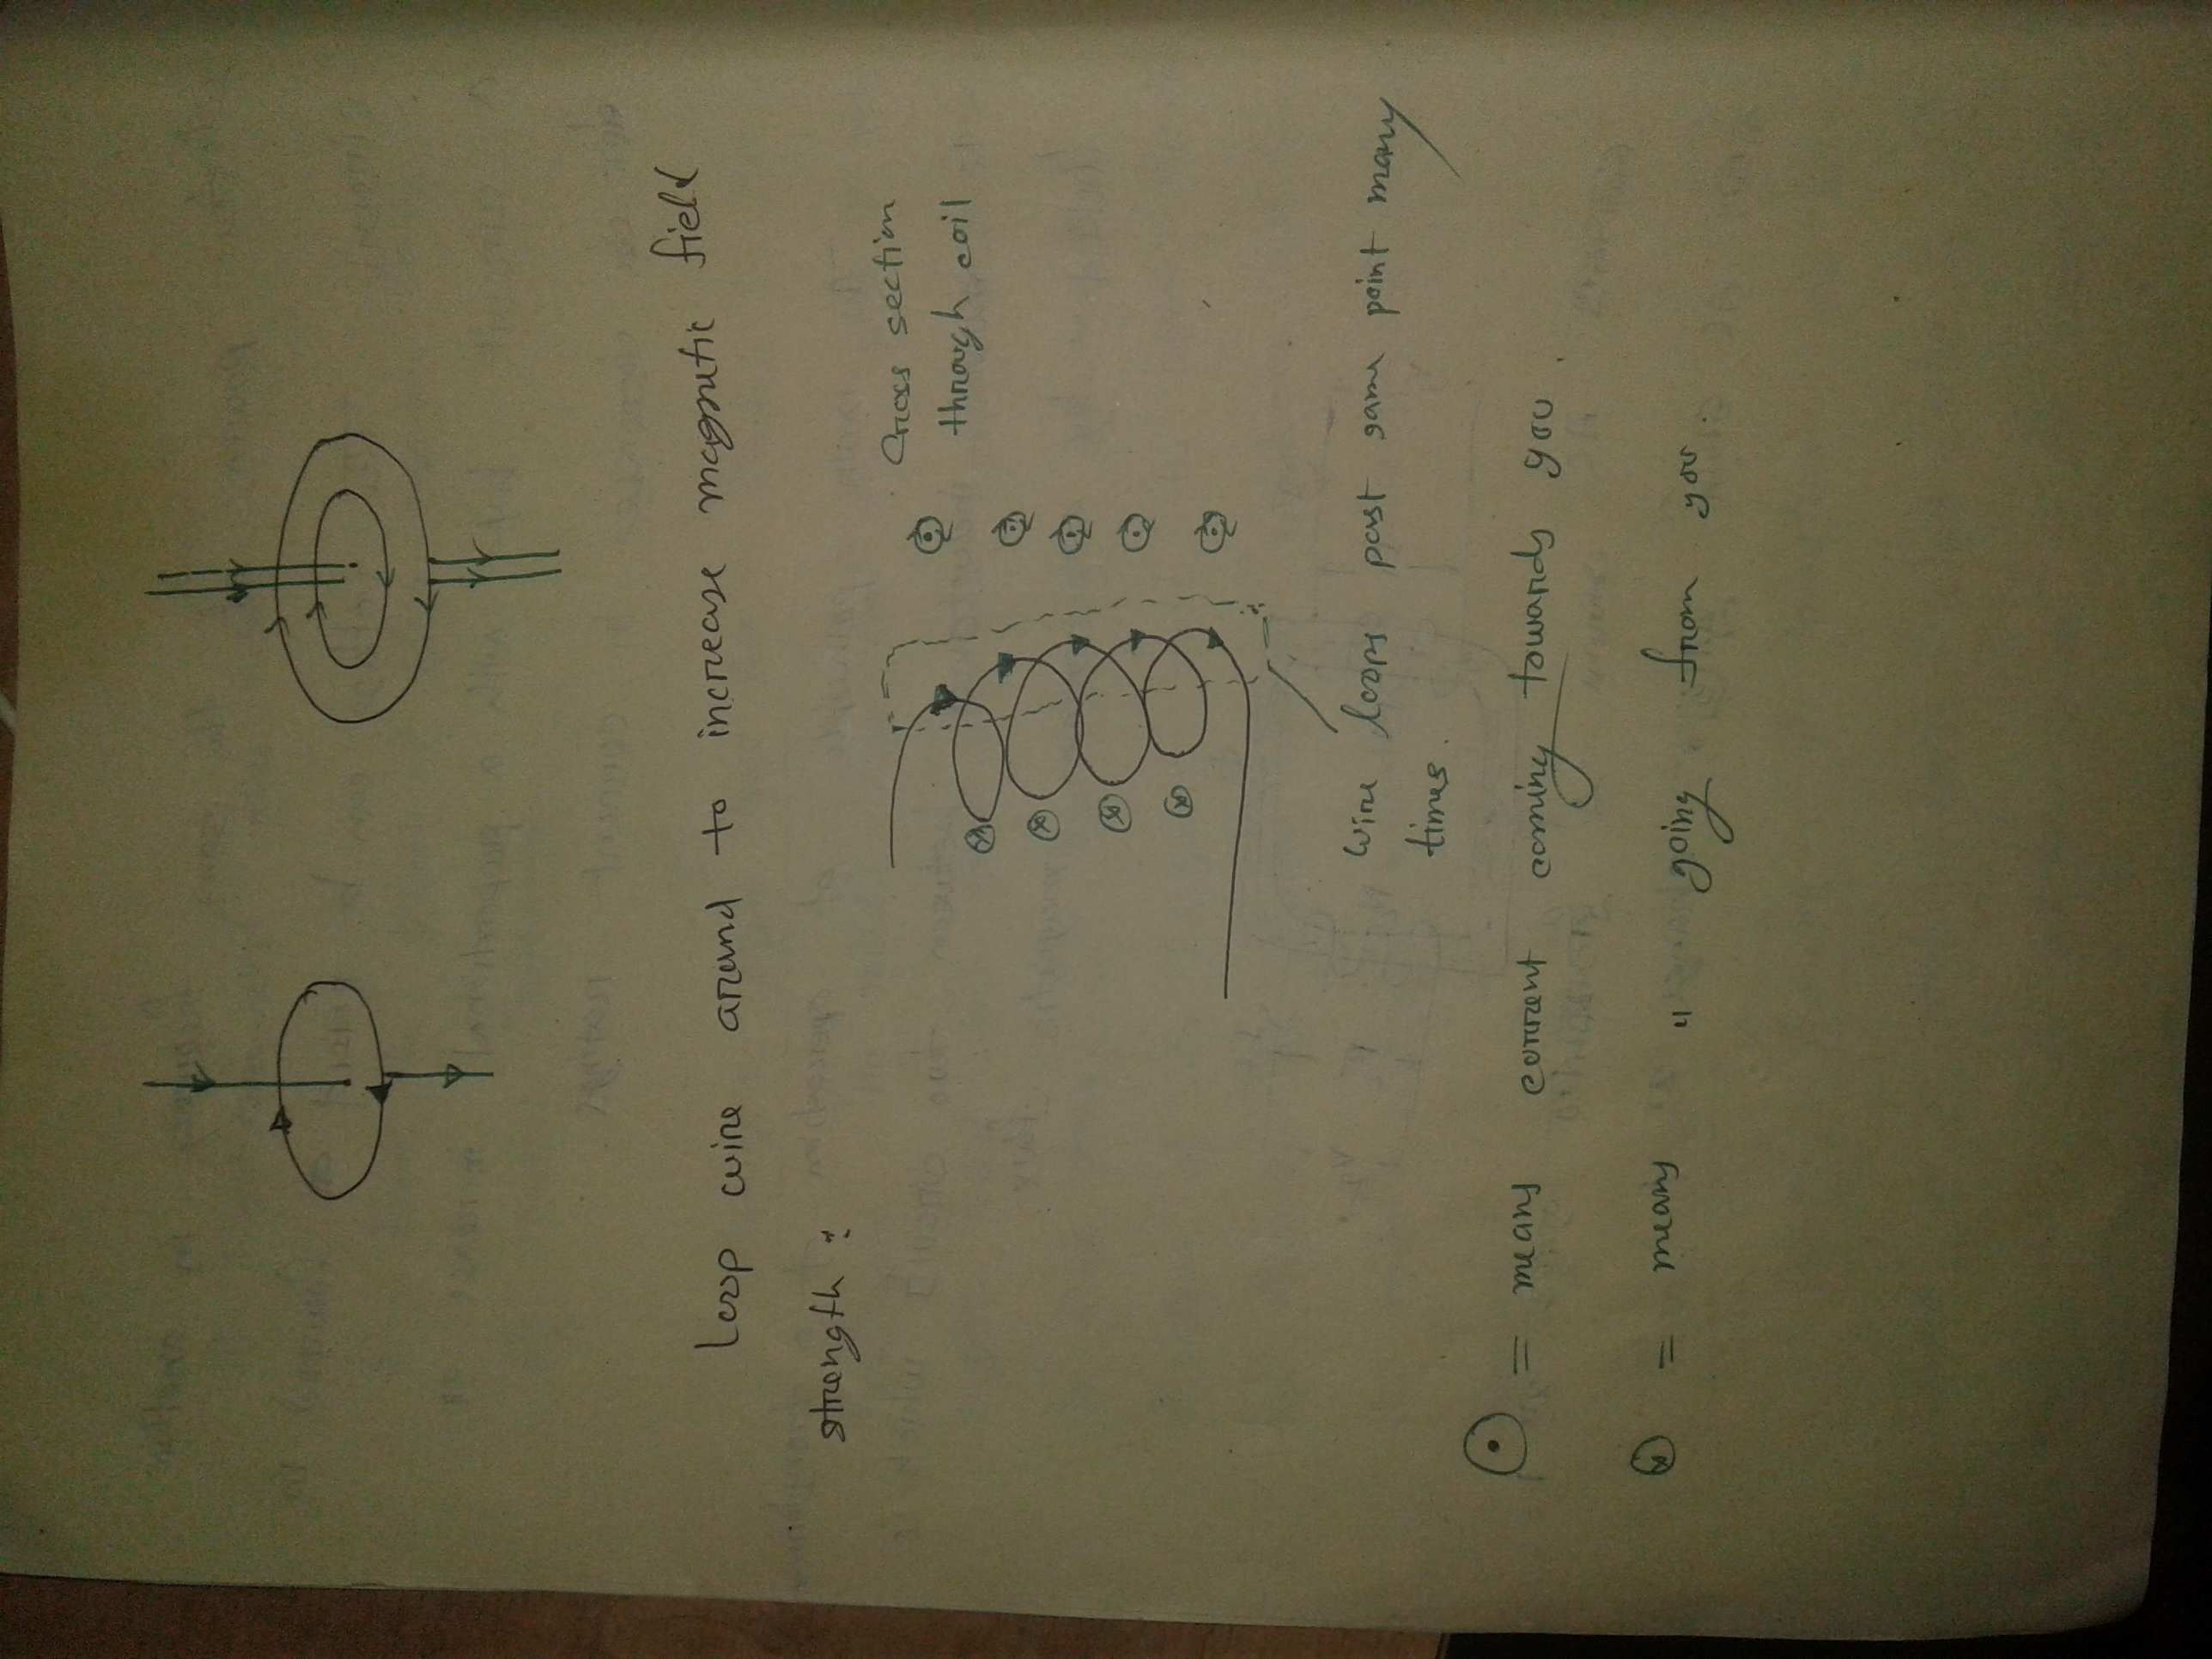 Loop wire around to increase magnetic field
strength :
Cross section
through coil
wire loops past same point many
times.
⊙ = means current coming towards you.
⊗ = means " going from you.